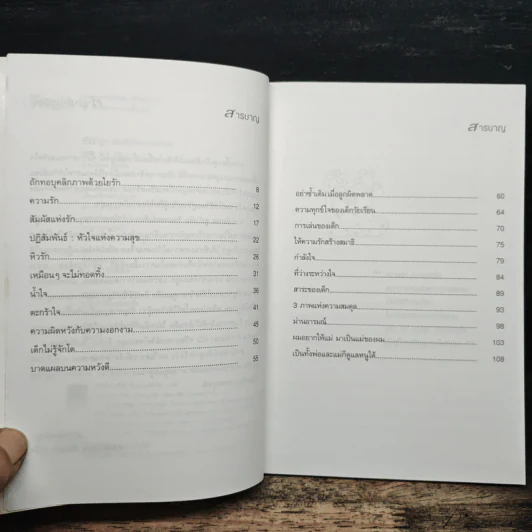 สารบาญ
ถักทอบุคลิกภาพด้วยใยรัก 8
ความรัก 12
สัมผัสแห่งรัก 17
ปฏิสัมพันธ์ : หัวใจแห่งความสุข 22
หิวรัก 26
เหมือนๆ จะไม่ทอดทิ้ง 31
น้ำใจ 36
ตะกร้าใจ 41
ความผิดหวังกับความงอกงาม 45
เด็กไม่รู้จักโต 50
บาดแผลบนความหวังดี 55
สารบาญ
อย่าซ้ำเติม เมื่อลูกผิดพลาด 60
ความทุกข์ใจของเด็กวัยเรียน 64
การเล่นของเด็ก 70
ให้ความรักสร้างสมาธิ 75
กำลังใจ 79
ที่ว่างระหว่างใจ 84
สาระของเด็ก 89
3 ภาพแห่งความสมดุล 93
ผ่านอารมณ์ 98
ผมอยากให้แม่ มาเป็นแม่ของผม 103
เป็นทั้งพ่อและแม่ก็ดูแลหนูได้ 108